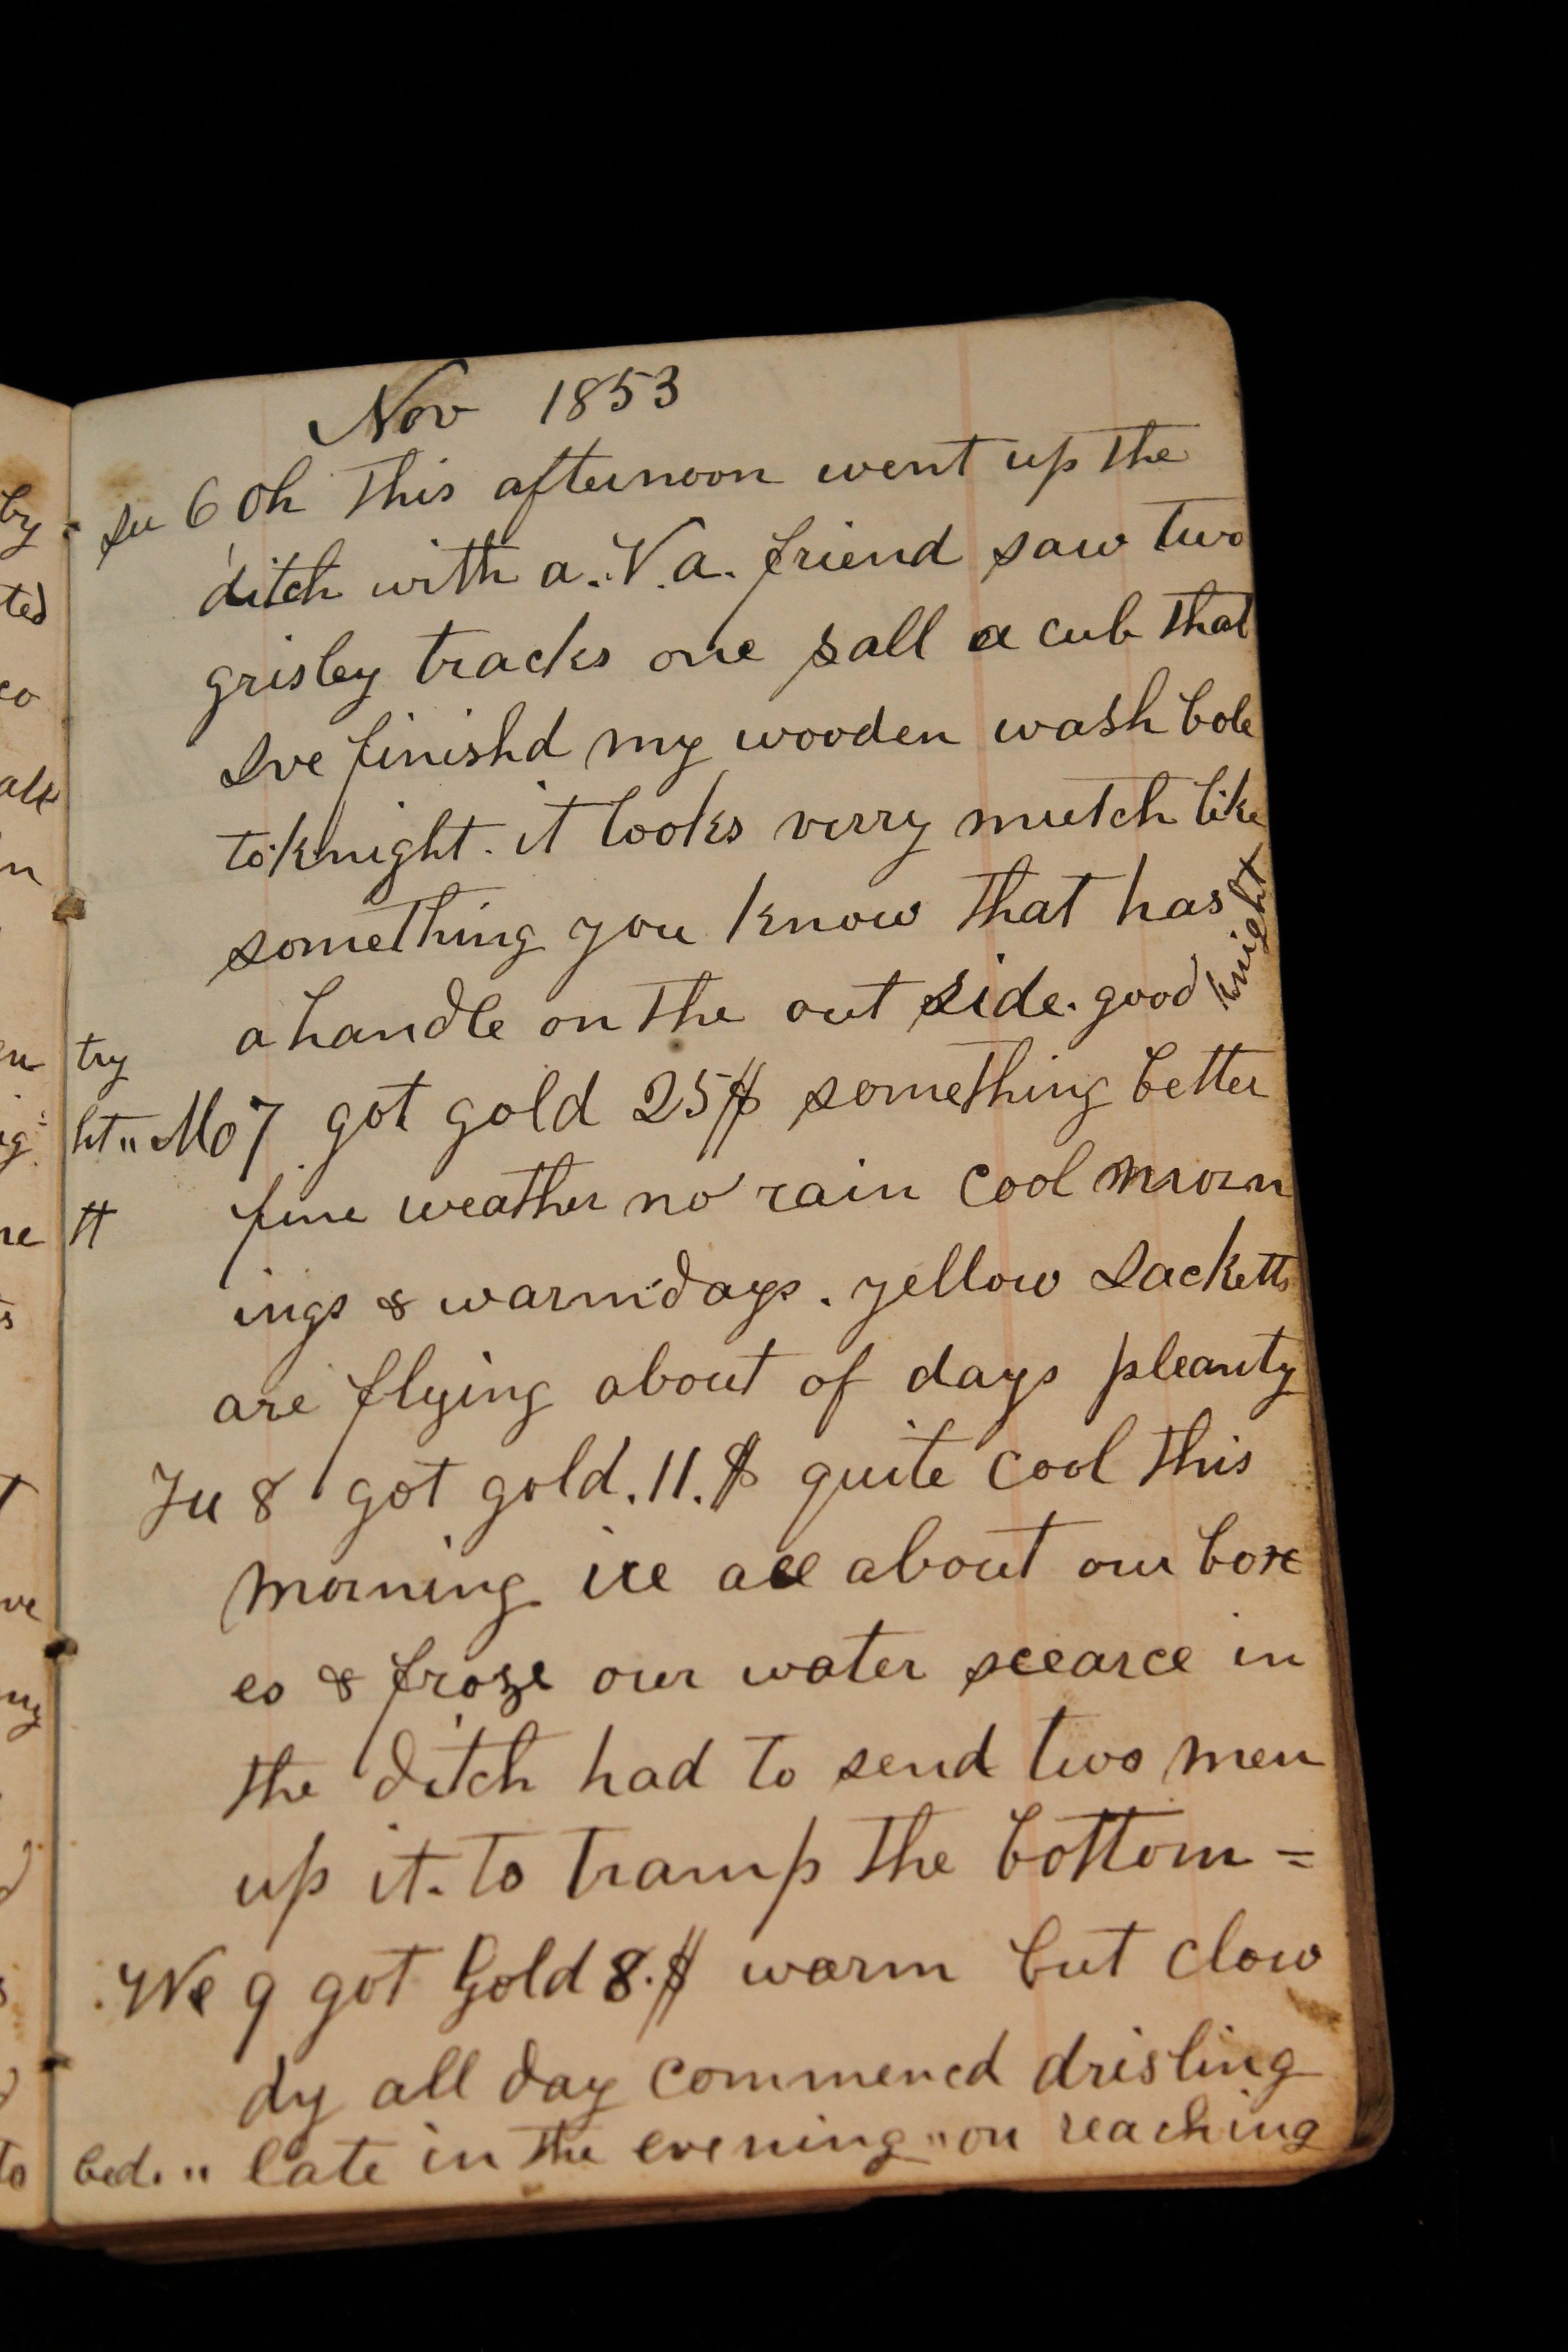 Nov 1853
Su 6 Oh this afternoon went up the
ditch with a. V. a. friend saw two
grisley tracks one sall a cub that
Ive finishd my wooden wash bole
to knight. it looks verry mutch like
something you know that has
a handle on the out side. good knight
try
Mo 7 got gold 25$ something better
ht "
fine weather no rain cool morn
tt
ings & warm days. yellow Jacketts
are flying about of days pleanty
Tu 8 got gold. 11. $ quite cool this
morning ice all about our box
es & froze our water scearce in
the ditch had to send two men
up it. to tramp the bottom =
We 9 got Gold 8. $ warm but clow
dy all day commencd drisling
late in the evening " on reaching
bed. "